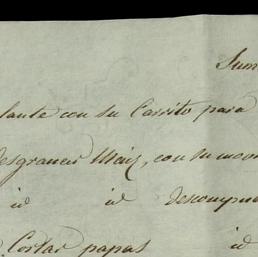 Sum
lante con su Carrito para
desgranar Maiz, con su
id id descompues
Cortar papas id